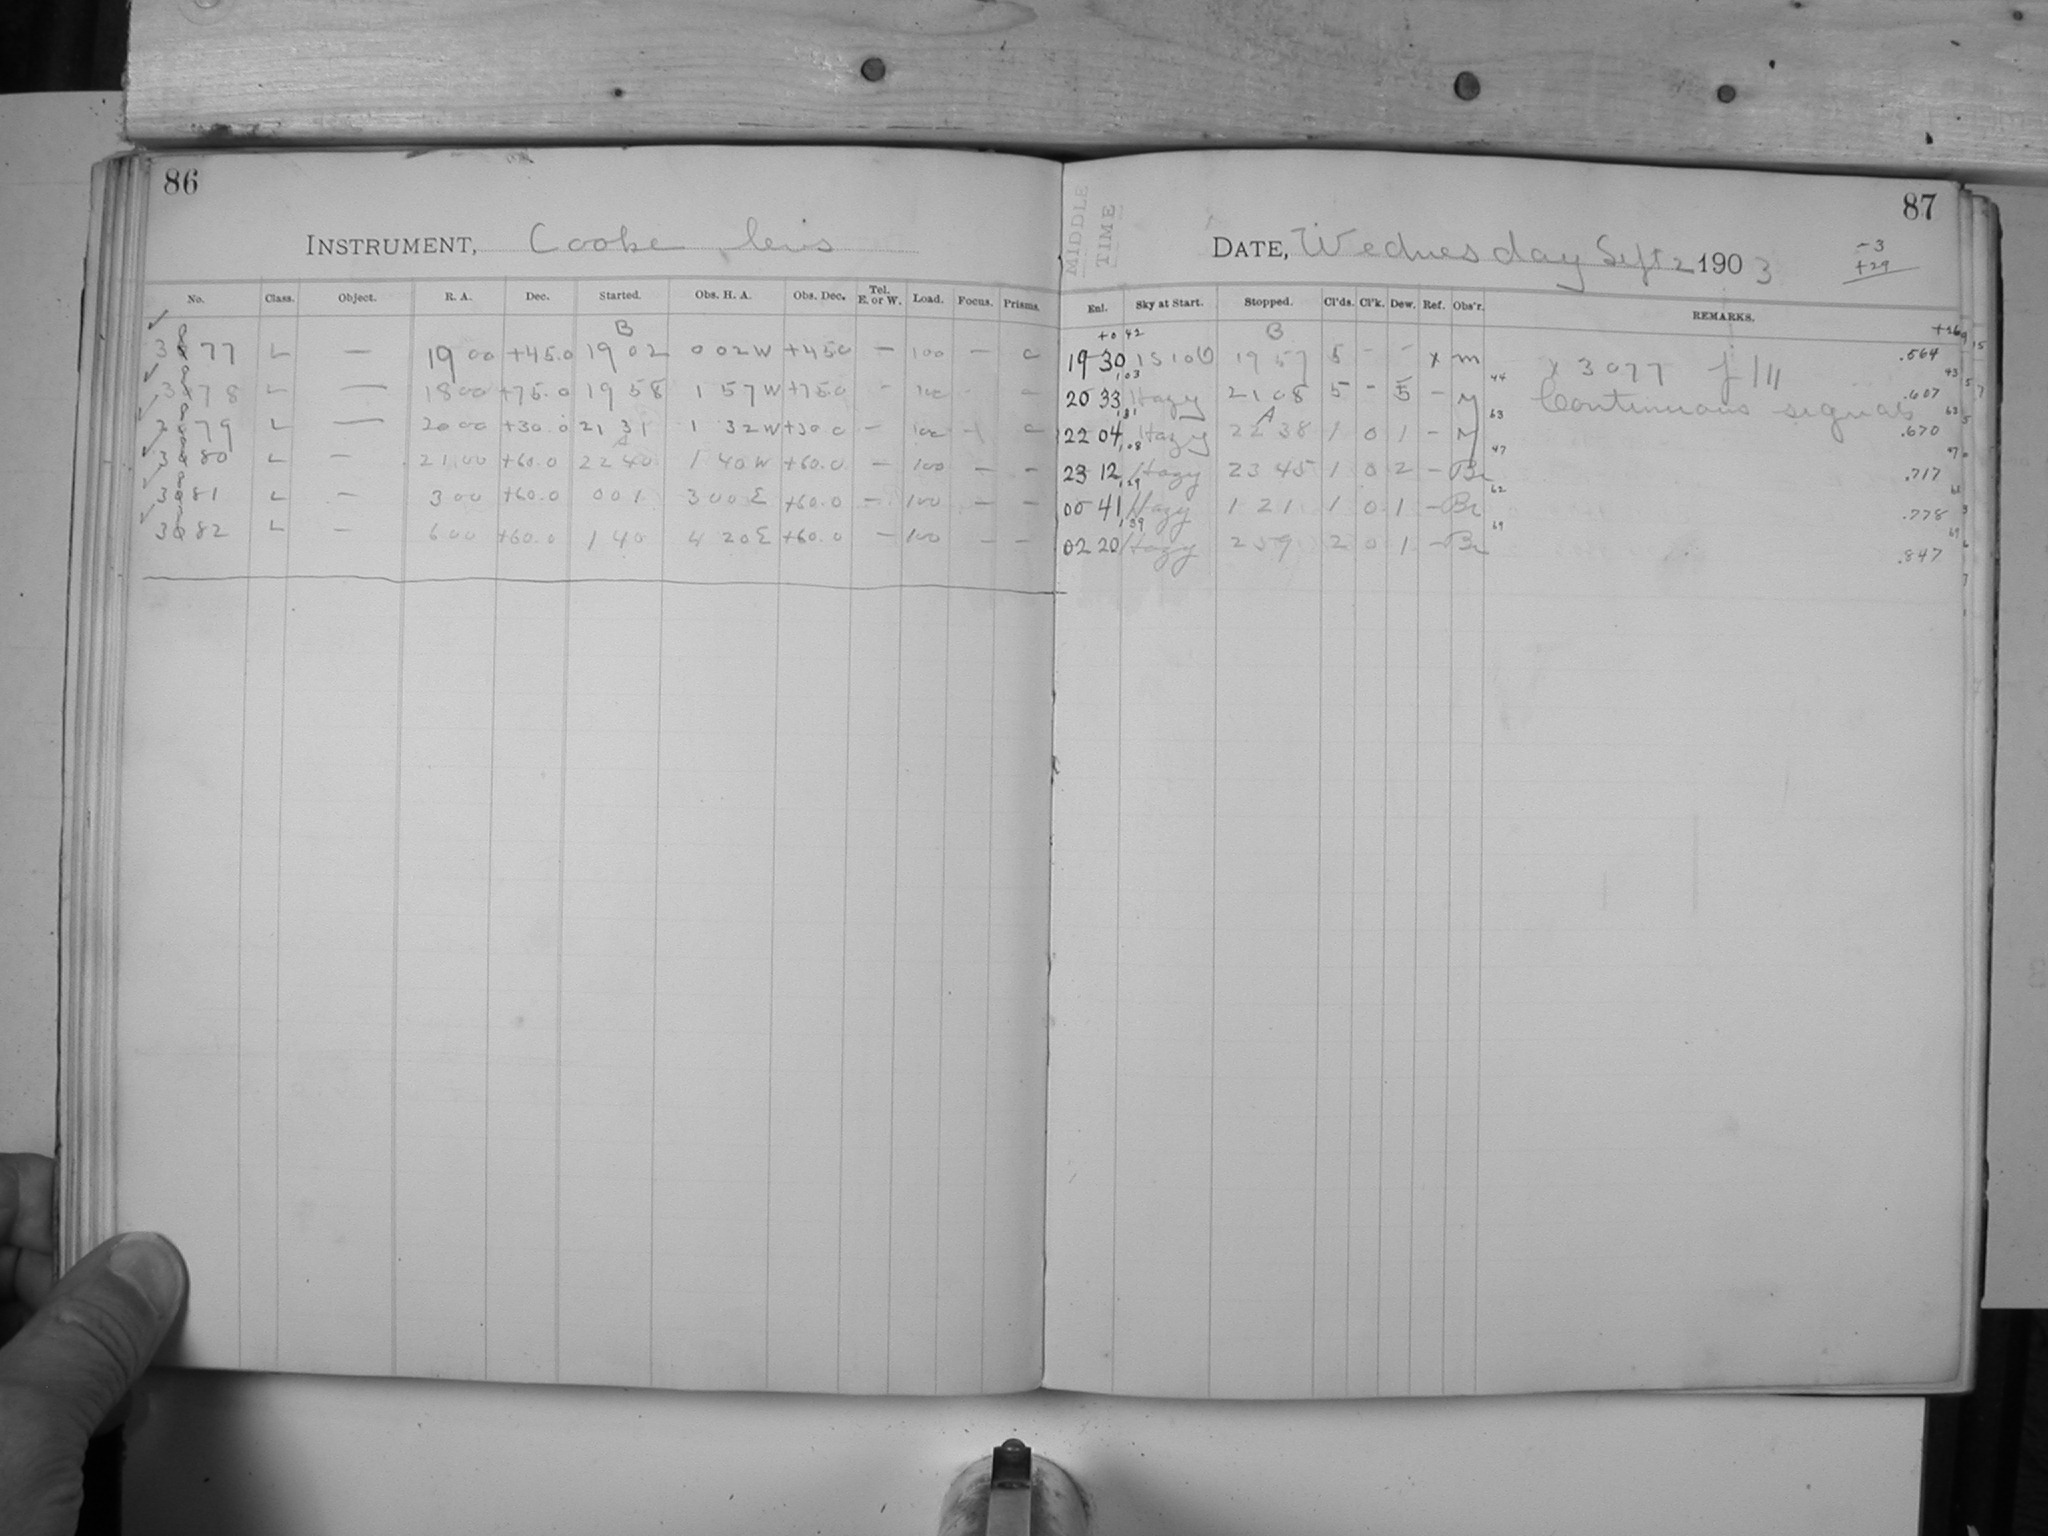 86
INSTRUMENT, Cooke lens
No. Class. Object. R. A. Dec. Started. Obs. H. A. Obs. Dec. Tel. E. or W. Load. Focus. Prisms.
B
3077 L — 19 00 +45.0 19 02 0 02 W +45.0 — 100 — 0
3078 L — 18 00 +75.0 19 58 1 57 W +75.0 - 100 - —
3079 L — 20 00 +30.0 21 31 1 32 W +30.0 — 100 - 0
A
3080 L — 21 00 +60.0 22 40 1 40 W +60.0 — 100 — —
3081 L — 3 00 +60.0 0 01 3 00 E +60.0 — 100 — —
3082 L — 6 00 +60.0 1 40 4 20 E +60.0 — 100 — —
87
MIDDLE
TIME
DATE, Wednesday Sept 2 1903
-3
+29
Enl. Sky at Start. Stopped. Cl'ds. Cl'k. Dew. Ref. Obs'r. REMARKS.
+0 42 B
19 30 19 57 5 - - x m x 3077 .564
1,03 44 43
20 33 Hazy 21 08 5 - 5 - M Continuous signals .607
1,31 A 63 63
22 04 Hazy 22 38 1 0 1 - M .670
1,08 47 47
23 12 Hazy 23 45 1 0 2 - Br .717
1,29 62 61
00 41 Hazy 1 21 1 0 1 - Br .778
1,39 69 69
02 20 Hazy 2 59 2 0 1 - Br .847